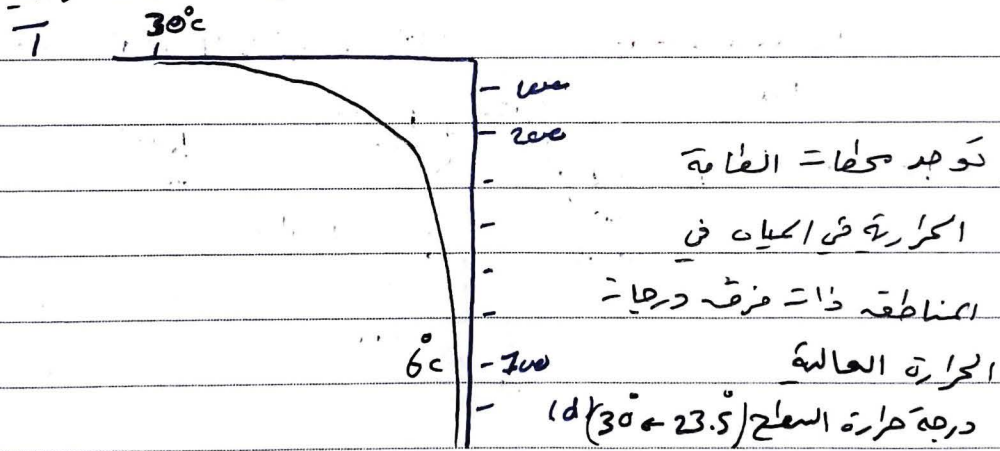 T
30°c
2000
توجد محطات الطاقة
الحرارية في المياه في
المناطق ذات فرق درجات
6°c
700
الحرارة العالية
درجة حرارة السطح (23.5° → 30°)